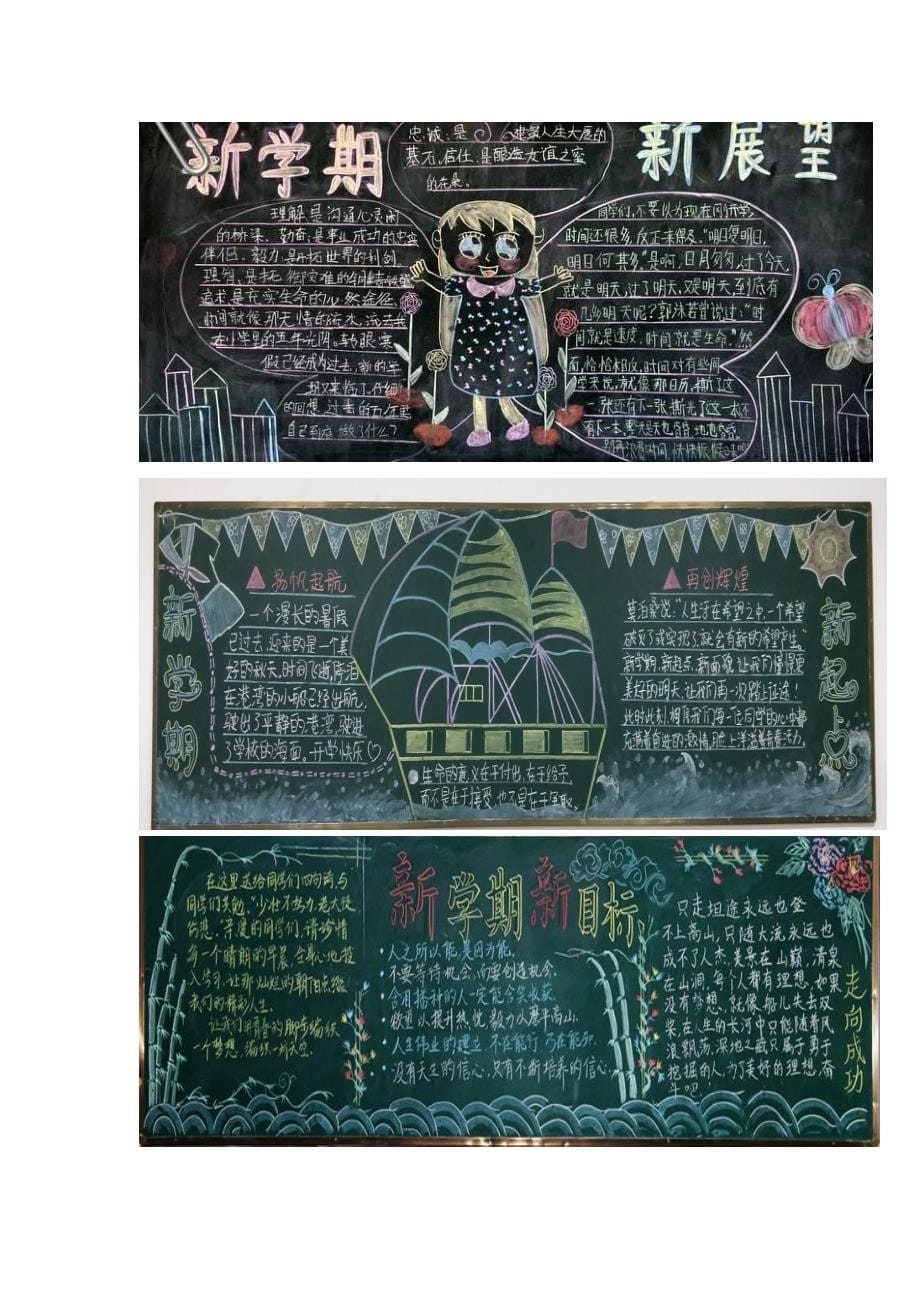 新学期
新展望
忠诚,是建筑人生大厦的
基石,信任,是酿造友谊之蜜
的花朵。
理解是沟通心灵间
的桥梁。勤奋,是事业成功的中坚
伴侣。毅力,是开拓世界的利剑。
理智,是抵御灾难的铜墙铁壁
追求是充实生命的
时间就像那无情的流水,流去我
在小学里的五年光阴。转眼寒
假已经成为过去,新的学
期又来临了,仔细
的回想,过去的
自己到底做了什么?
同学们,不要以为现在刚开学,
时间还很多,反正来得及。“明日复明日,
明日何其多。”是啊,日月匆匆,过了今天,
就是明天,过了明天,又是明天,到底有
几多明天呢?郭沫若曾说过:“时
间就是速度,时间就是生命。”然
而,恰恰相反,时间对有些同
学来说,就像那日历,撕了这
一张还有下一张,撕光了这一本还
有下一本,
新学期
扬帆起航
一个漫长的暑假
已过去,迎来的是一个美
好的秋天,时间飞逝,停泊
在港湾的小船已经出航,
驶出了平静的港湾,驶进
了学校的海面。开学快乐
生命的意义在于付出,在于给予,
而不是在于接受,也不是在于争取。
再创辉煌
莫泊桑说:“人生活在希望之中,一个希望
破灭了或实现了,就会有新的希望产生。”
新学期,新起点,新面貌,让我们憧憬更
美好的明天,让我们再一次踏上征途!
此时此刻,相信我们每一位同学的心中都
充满着奋进的激情,脸上洋溢着青春活力。
新起点
新学期新目标
在这里送给同学们四句前,与
同学们共勉。“少壮不努力,老大徒
伤悲。”亲爱的同学们,请珍惜
每一个晴朗的早晨,全身心地投
入学习,让那灿烂的朝阳点缀
我们的精彩人生。
让我们用青春的脚步编织
一个梦想,编织一片天空。
人之所以能,是因为能。
不要等待机会,而要创造机会。
含泪播种的人一定能含笑收获。
欲望以提升热忱,毅力以磨平高山。
人生伟业的建立,不在能行,乃在能知。
没有天生的信心,只有不断培养的信心。
只走坦途永远也登
不上高山,只随大流永远也
成不了人杰,美景在山巅,清泉
在山涧,每个人都有理想,如果
没有梦想,就像船儿失去双
桨在人生的长河中只能随着风
浪飘荡,深地之藏只属于勇于
挖掘的人,为了美好的理想,奋
斗吧!
走向成功